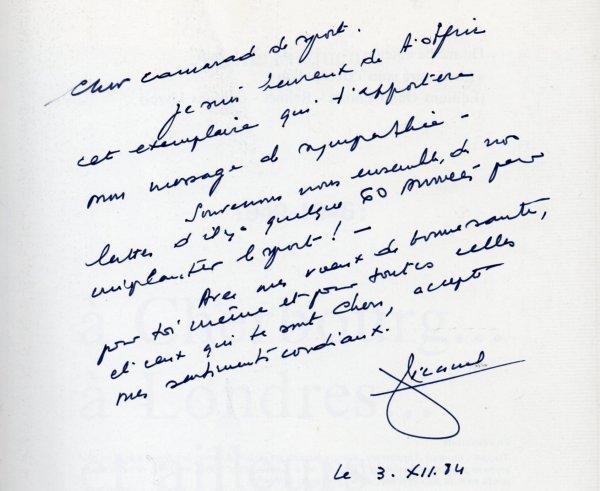 Cher camarad de sport.
Je suis heureux de t'offrir
cet exemplaire qui t'apportera
mon message de sympathie -
Souvenons nous ensemble, de nos
luttes d'il y a quelque 60 années pour
implanter le sport! -
Avec mes vœux de bonne santé,
pour toi même et pour toutes celles
et ceux qui te sont chers, accepte
mes sentiments cordiaux.
le 3. XII. 84
à Cherbourg...
à Londres...
et ailleurs